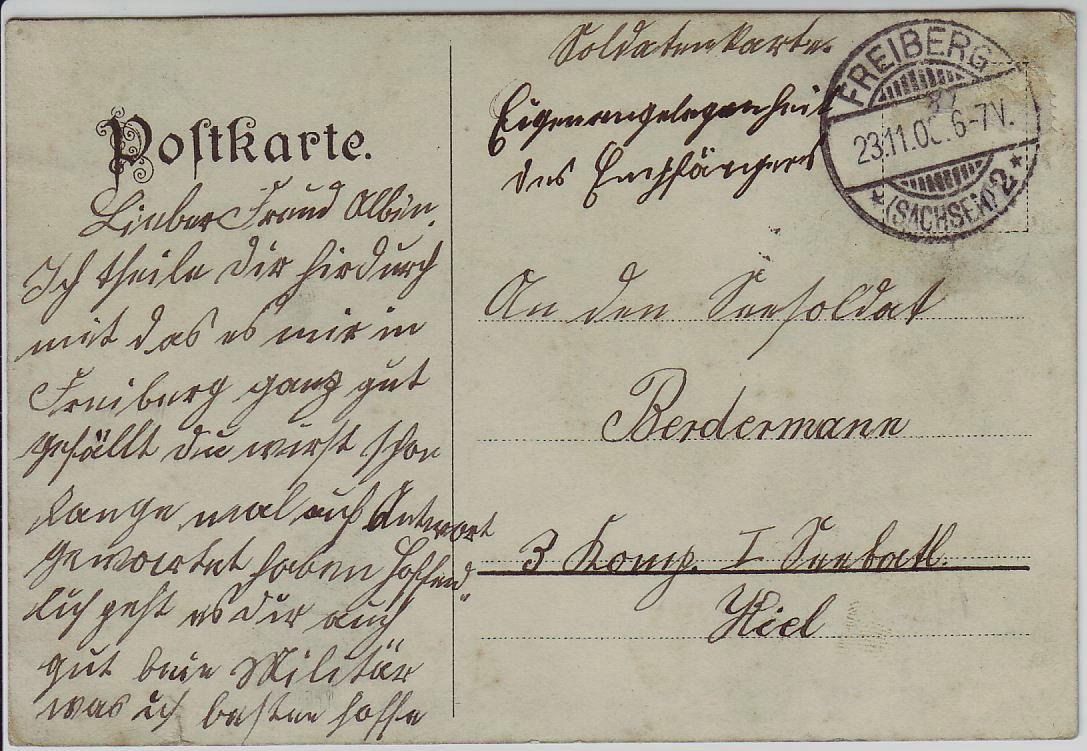 Postkarte.
Lieber Freund Albin.
Ich theile dir hirdurch
mit das es mir in
Freiberg ganz gut
gefällt du wirst schon
lange mal auf Antwort
gewartet haben hoffend
lich geht es dir auch
gut beim Militär
was ich besten hoffe
Soldatenkarte.
Eigenangelegenheit
des Empfängers
FREIBERG
23.11.0 6-7N.
*(SACHSEN) 2*
An den Seesoldat
Berdermann
3 Komp. I Seebatl.
Kiel